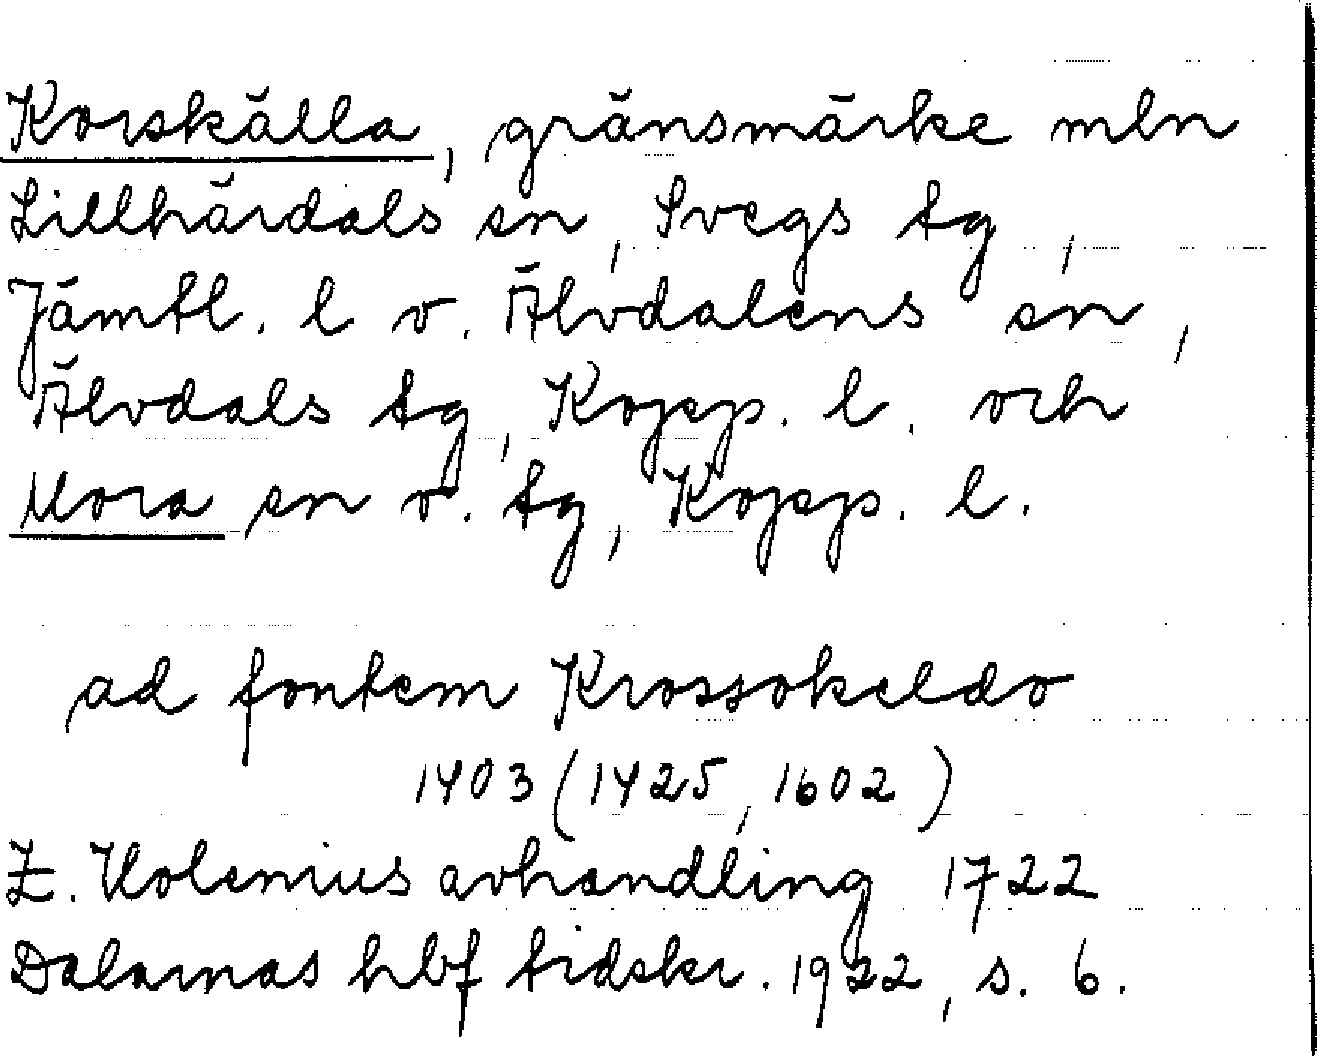 Korskälla, gränsmärke mln
Lillhärdals sn, Svegs tg,
Jämtl. l o. Älvdalens sn,
Älvdals tg, Kopp. l. och
Mora sn o. tg, Kopp. l.
ad fontem Krossokeldo
1403 (1425, 1602)
Z. Holenius avhandling 1722
Dalarnas hbf tidskr. 1922, s. 6.